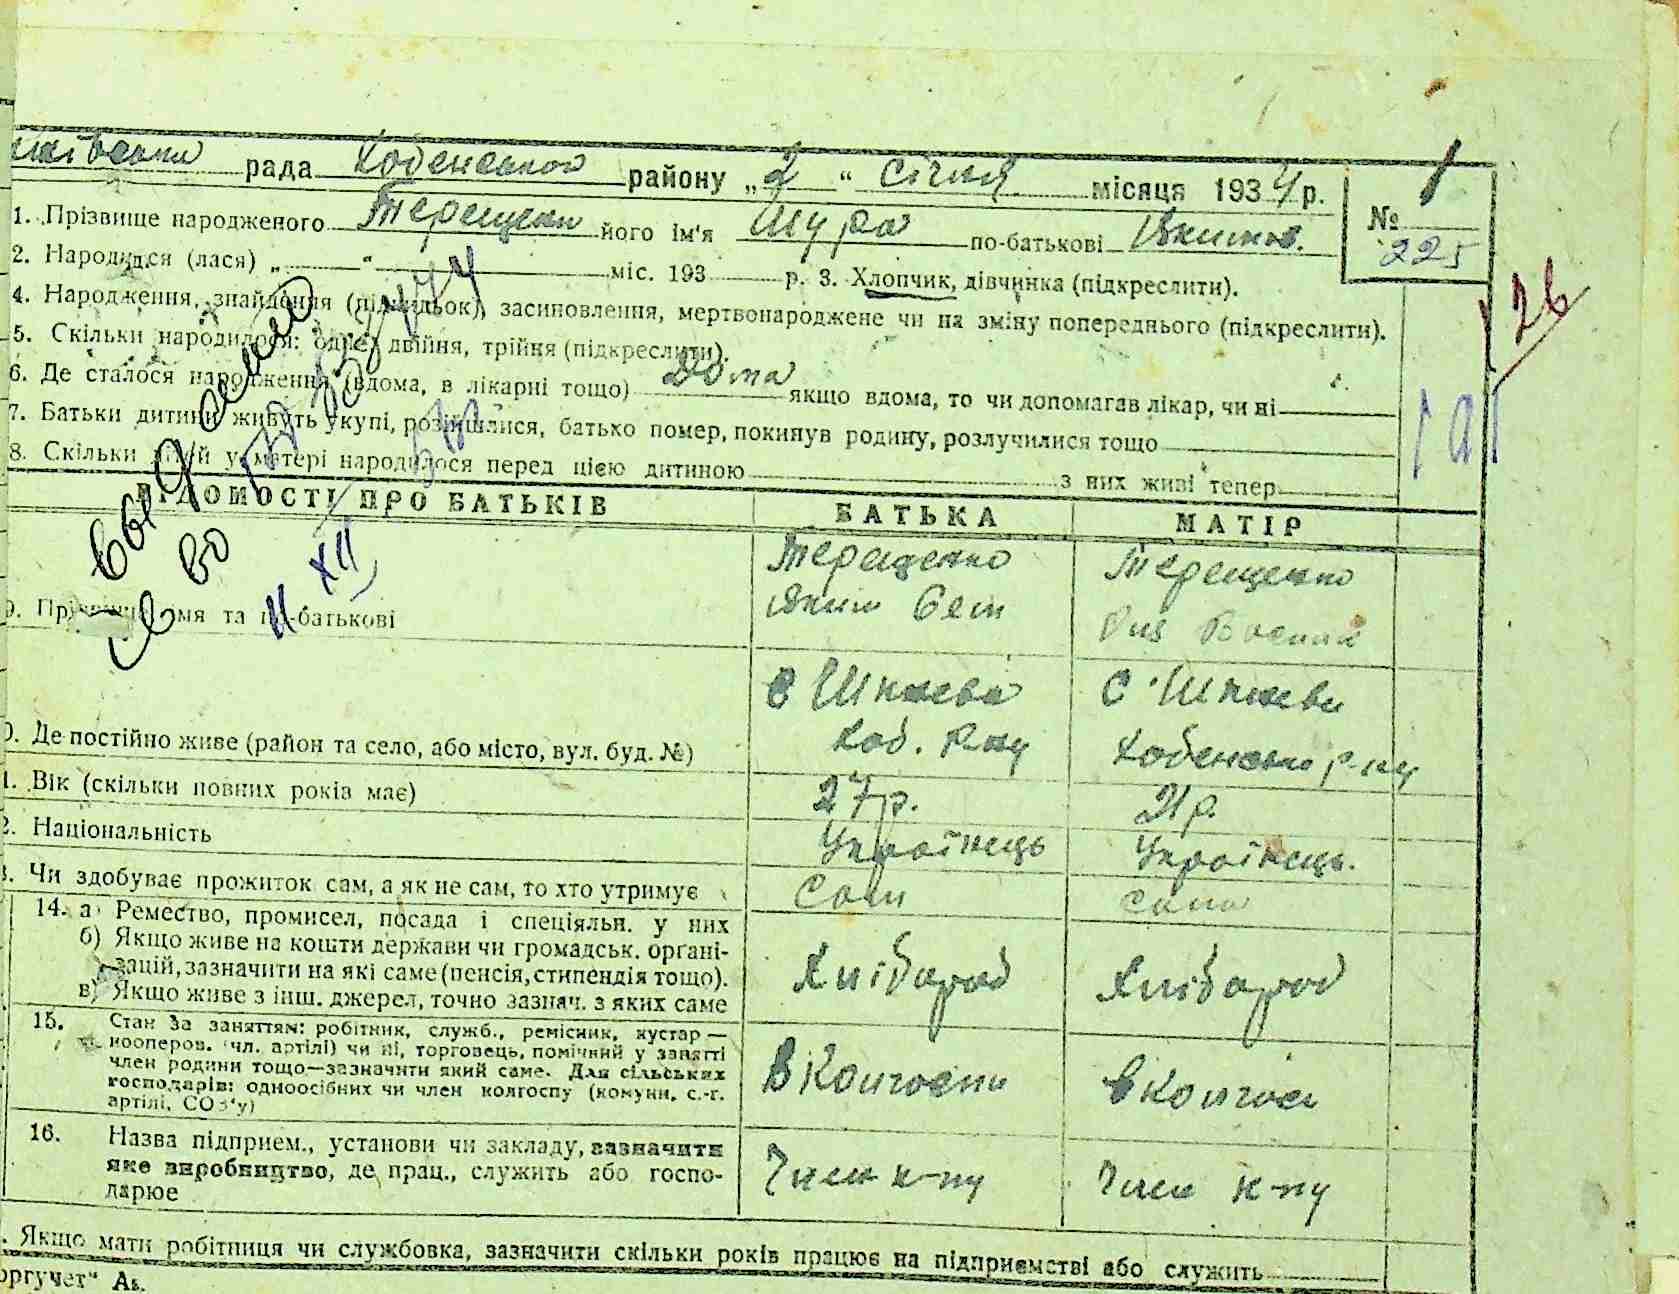 рада Кобеняцького району „2“ Січня місяця 1934 р.
№ 1
225
1. Прізвище народженого Терещенко його ім'я Шура по-батькові Якимов.
2. Народився (лася) „ “ міс. 193 р. 3. Хлопчик, дівчинка (підкреслити).
4. Народження, знайдення (підкидьок), засиновлення, мертвонароджене чи на зміну попереднього (підкреслити).
5. Скільки народилося: одне, двійня, трійня (підкреслити).
6. Де сталося народження (вдома, в лікарні тощо) Дома якщо вдома, то чи допомагав лікар, чи ні
7. Батьки дитини живуть укупі, розійшлися, батько помер, покинув родину, розлучилися тощо
8. Скільки дітей у матері народилося перед цією дитиною з них живі тепер
126
выдано
св во
11 XII
ВІДОМОСТІ ПРО БАТЬКІВ БАТЬКА МАТІР
9. Прізвище, імя та по-батькові
Терещенко Терещенко
Яким
0. Де постійно живе (район та село, або місто, вул. буд. №)
с
Коб. р-ну р-ну
1. Вік (скільки повних років має) 27 р. 21 р.
2. Національність Українець Українець.
3. Чи здобуває прожиток сам, а як не сам, то хто утримує Сам сама
14. а) Ремество, промисел, посада і спеціяльн. у них
б) Якщо живе на кошти держави чи громадськ. органі-
зацій, зазначити на які саме (пенсія, стипендія тощо).
в) Якщо живе з інш. джерел, точно зазнач. з яких саме
Хлібороб Хлібороб
15. Стан за заняттям: робітник, служб., ремісник, кустар —
кооперов. (чл. артілі) чи ні, торговець, помічний у занятті
член родини тощо—зазначити який саме. Для сільських
господарів: одноосібних чи член колгоспу (комуни, с.-г.
артілі, СОЗ'у)
В Колгоспи в Колгосп
16. Назва підприєм., установи чи закладу, зазначити
яке виробництво, де прац., служить або госпо-
дарює
Член к-пу Член к-пу
. Якщо мати робітниця чи службовка, зазначити скільки років працює на підприємстві або служить
оргучет“